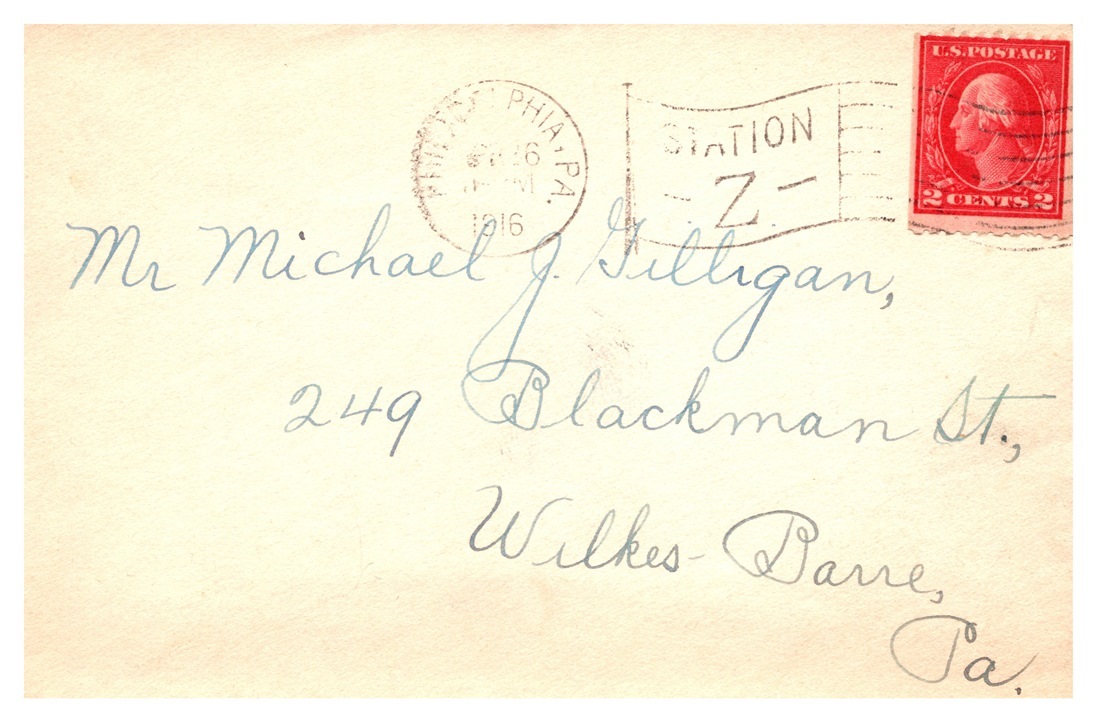 U.S. POSTAGE
PHILADELPHIA, PA.
1916
STATION
Z
2 CENTS 2
Mr Michael J. Gilligan,
249 Blackman St.,
Wilkes-Barre,
Pa.